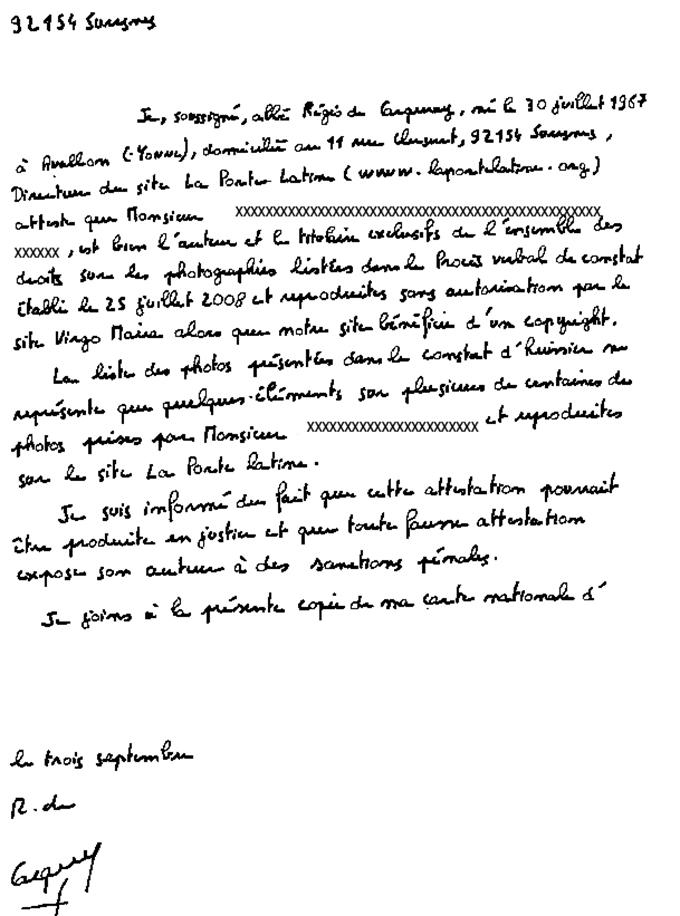 92154 Suresnes
Je, soussigné, abbé Régis de Cacqueray, né le 30 juillet 1967
à Avallon (Yonne), domicilié au 11 rue Cluseret, 92154 Suresnes,
Directeur du site La Porte Latine (www.laportelatine.org)
atteste que Monsieur XXXXXXXXXXXXXXXXXXXXXXXXXXXXXXXXXXXXXXXXXXXXXXXXXX
XXXXXX, est bien l'auteur et le titulaire exclusifs de l'ensemble des
droits sur les photographies listées dans le Procès verbal de constat
établi le 25 juillet 2008 et reproduites sans autorisation par le
site Virgo Maria alors que notre site bénéficie d'un copyright.
La liste des photos présentées dans le constat d'Huissier ne
représente que quelques éléments sur plusieurs de centaines de
photos prises par Monsieur XXXXXXXXXXXXXXXXXXXXXXX et reproduites
sur le site La Porte latine.
Je suis informé du fait que cette attestation pourrait
être produite en justice et que toute fausse attestation
expose son auteur à des sanctions pénales.
Je joins à la présente copie de ma carte nationale d'
le trois septembre
R. de
Cacqueray